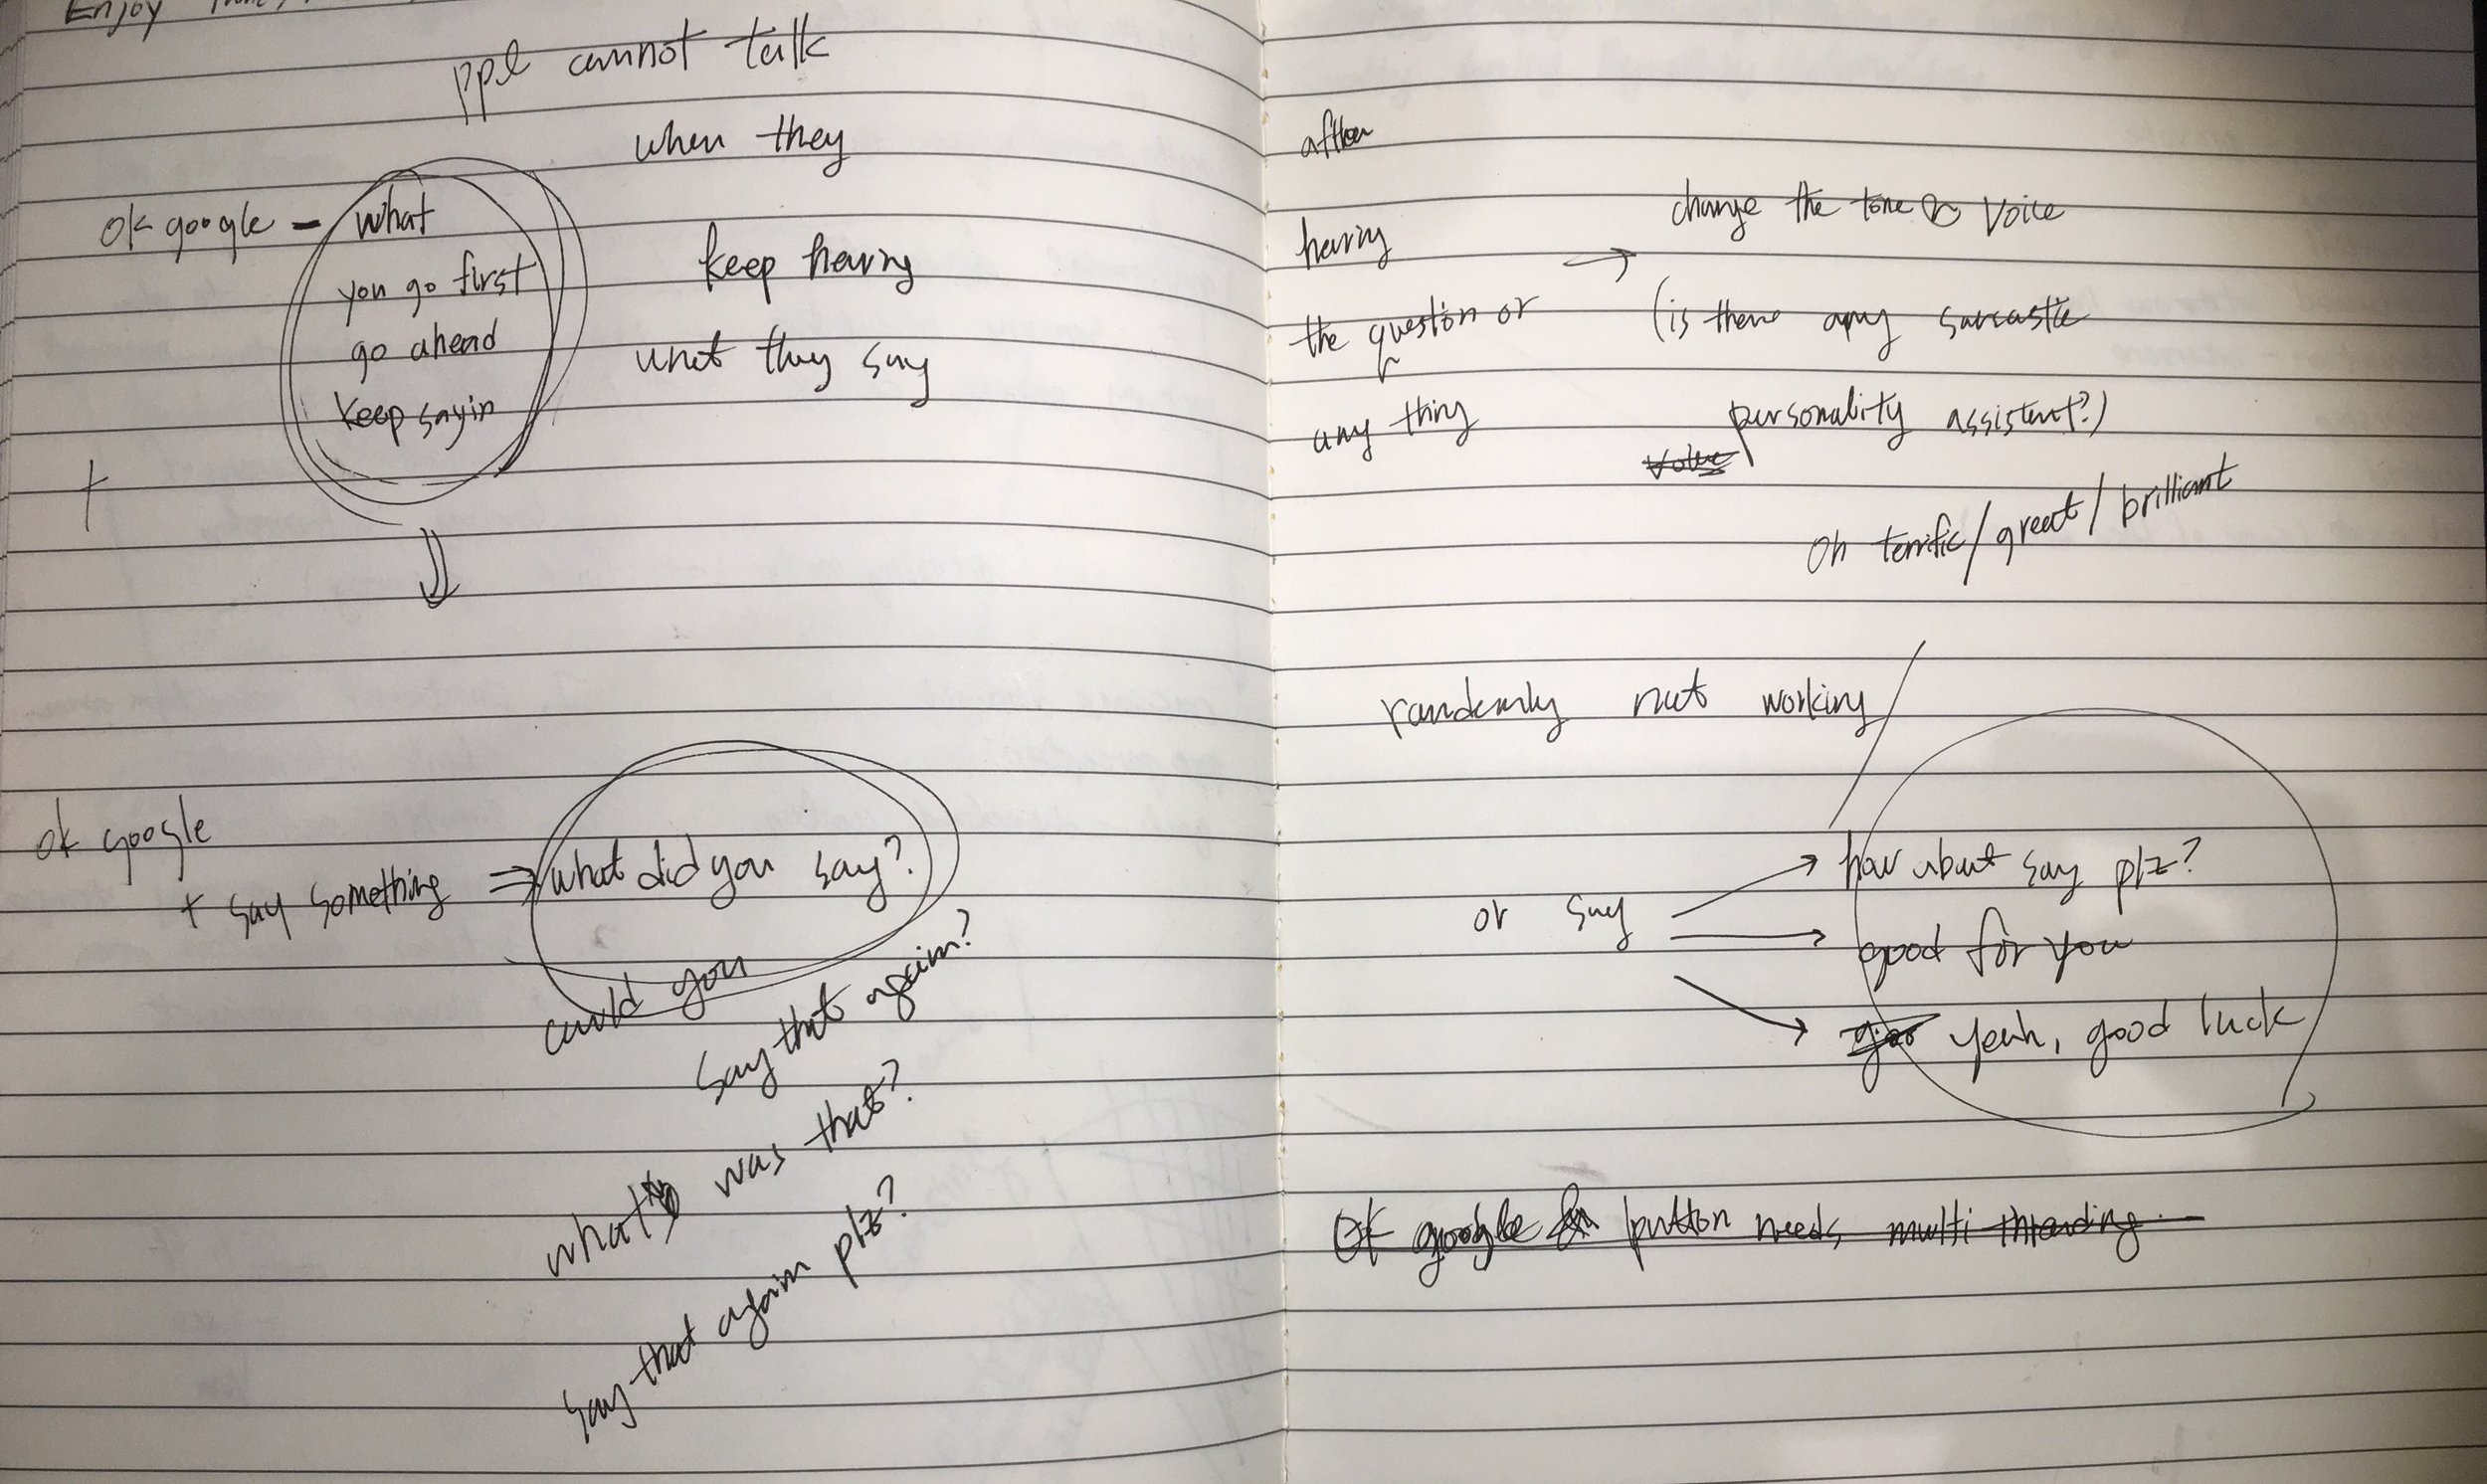 Enjoy
ppl cannot talk
when they
keep hearing
what they say
ok google - what
you go first
go ahead
keep sayin
ok google
+ say something ⇒ what did you say?
could you
say that again?
what was that?
say that again plz?
after
hearing
the question or
any thing
→ change the tone or voice
(is there any sarcastic
personality assistent?)
Oh terrific/great/brilliant
randomly not working
or say → how about say plz?
→ good for you
→ yeah, good luck
Ok google button needs multi threading